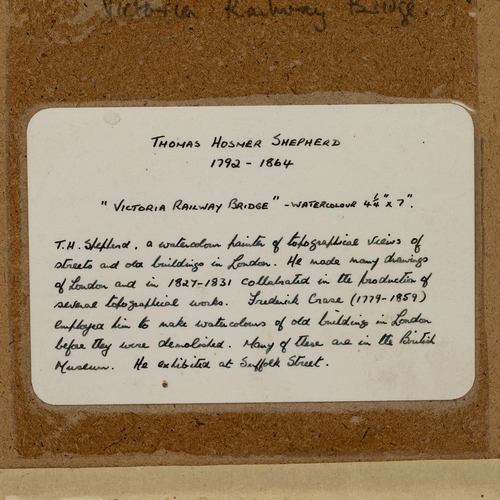 Victoria Railway Bridge.
THOMAS HOSMER SHEPHERD
1792 - 1864
"VICTORIA RAILWAY BRIDGE" - WATERCOLOUR 4¼" x 7".
T.H. Shepherd, a watercolour painter of topographical views of
streets and old buildings in London. He made many drawings
of London and in 1827-1831 collabrated in the production of
several topographical works. Frederick Crase (1779-1859)
employed him to make watercolours of old buildings in London
before they were demolished. Many of these are in the British
Museum. He exhibited at Suffolk Street.